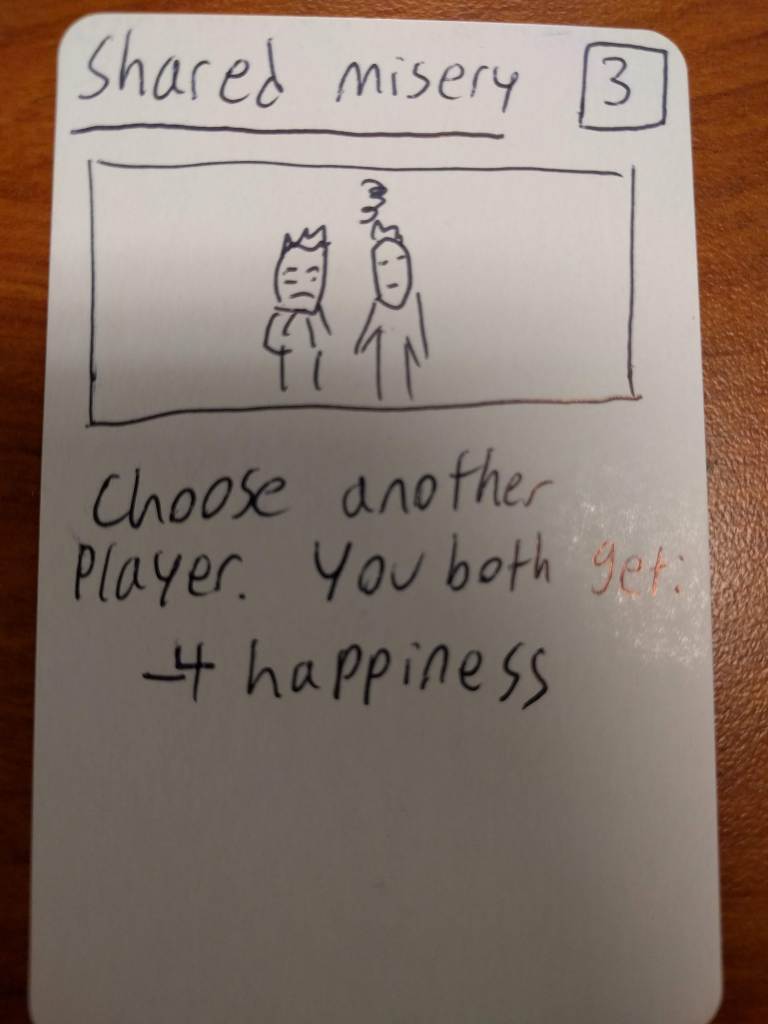 Shared misery 3
Choose another
Player. You both get:
-4 happiness